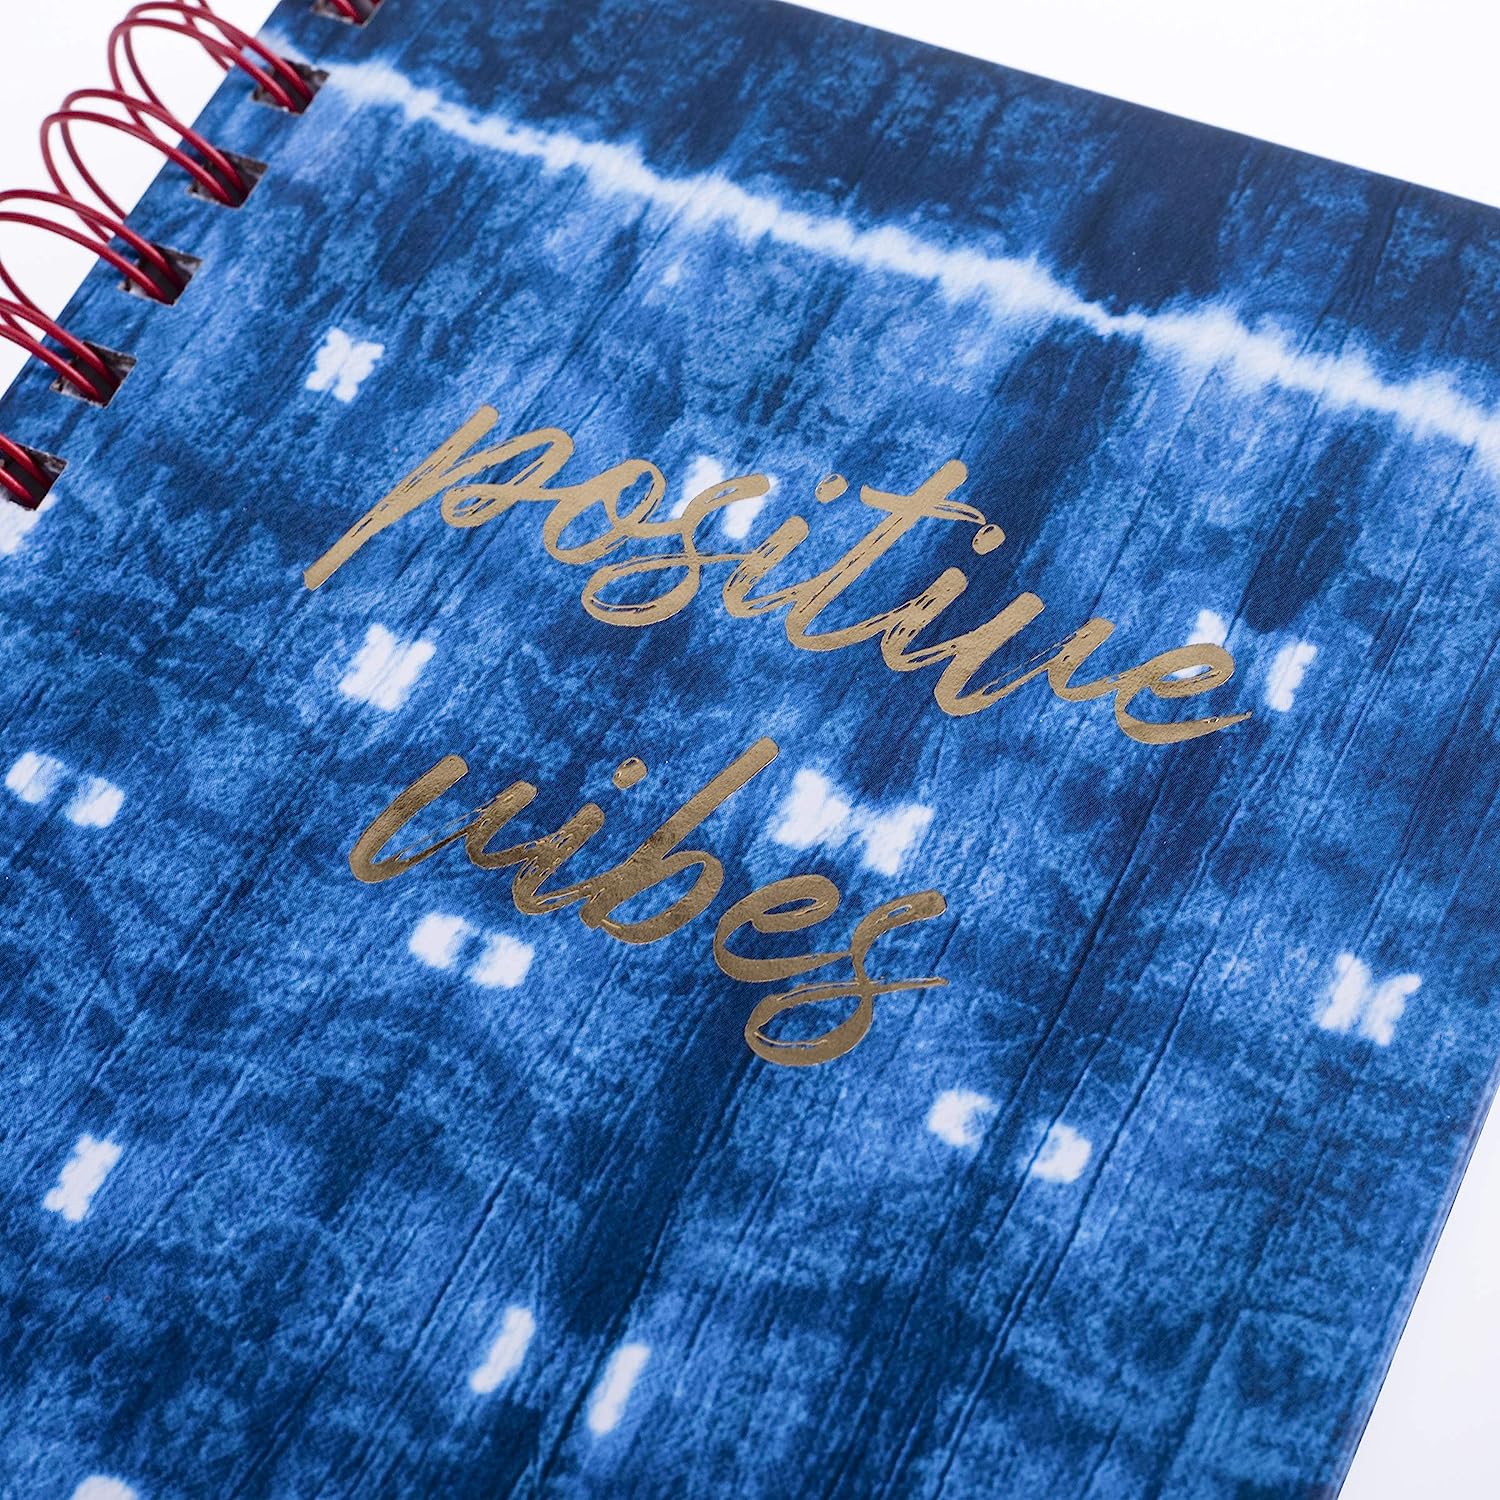 positive
vibes